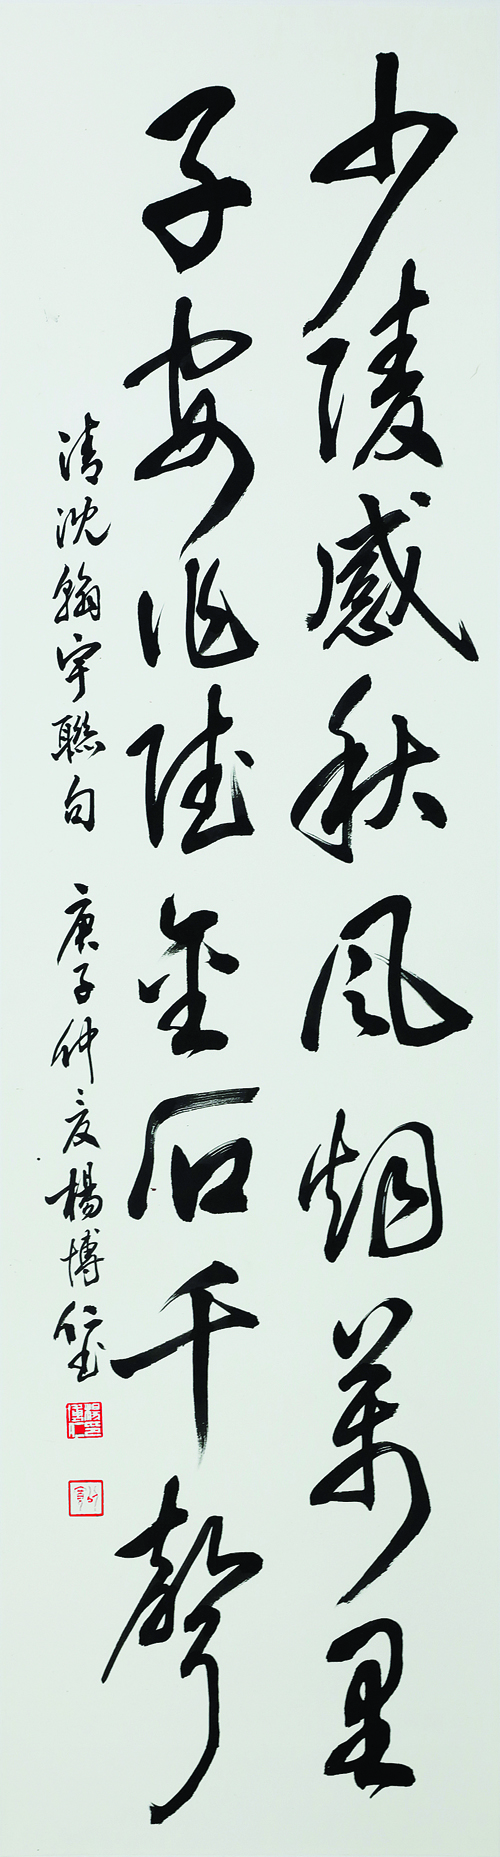 少陵感秋風烟萬里
子安作賦金石千聲
清沈翰宇聯句 庚子仲夏楊博仁書